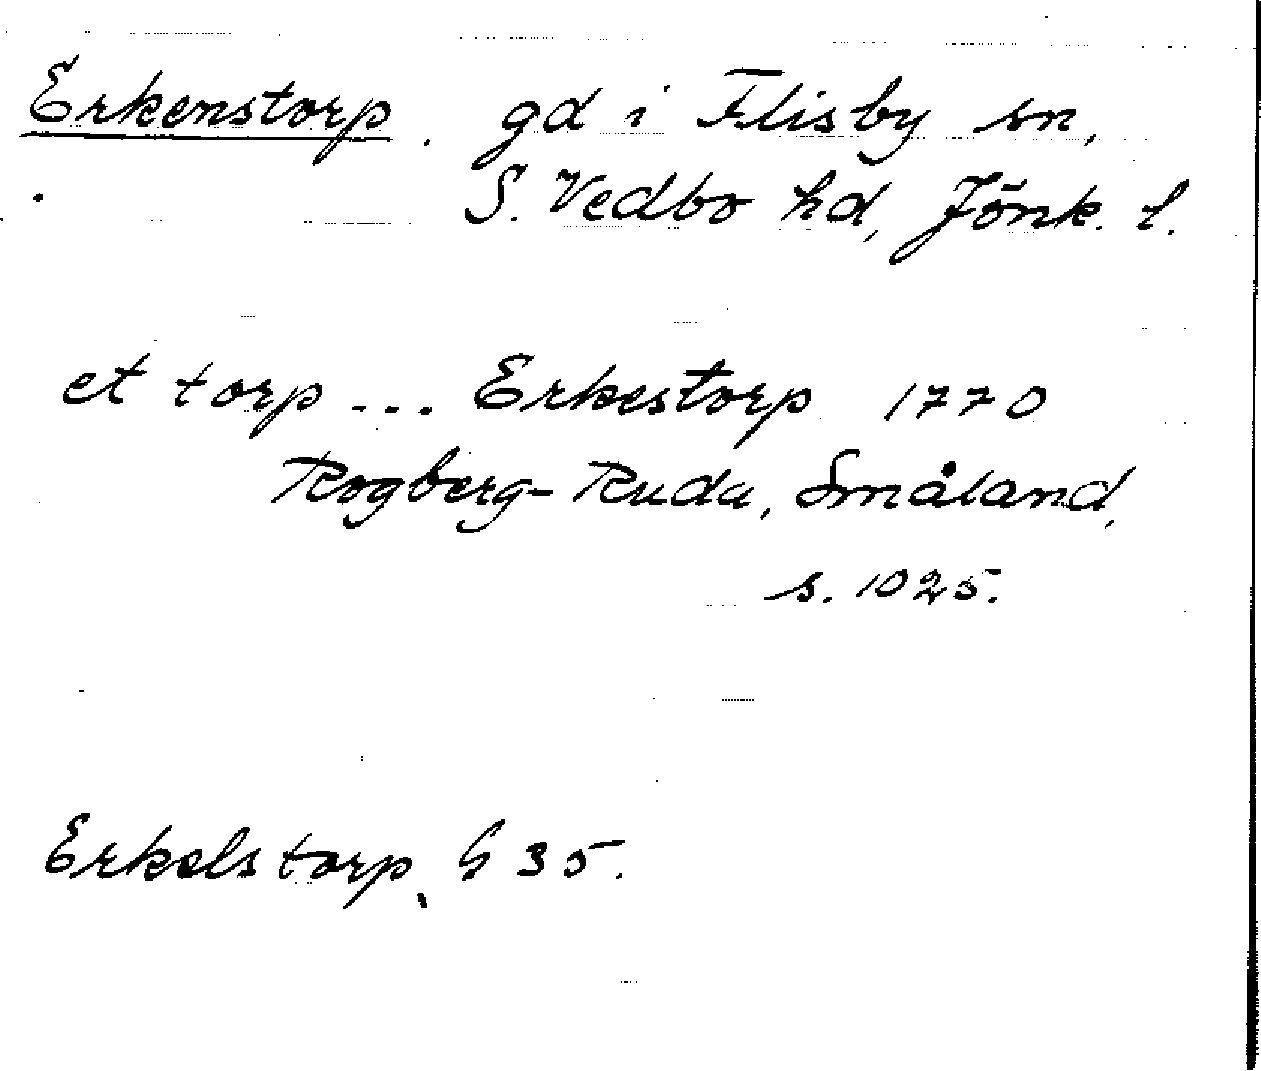 Erkenstorp. gd i Flisby sn,
S. Vedbo hd, Jönk. l.
et torp ... Erkestorp 1770
Rogberg-Ruda, Småland,
s. 1025.
Erkelstorp, G 35.